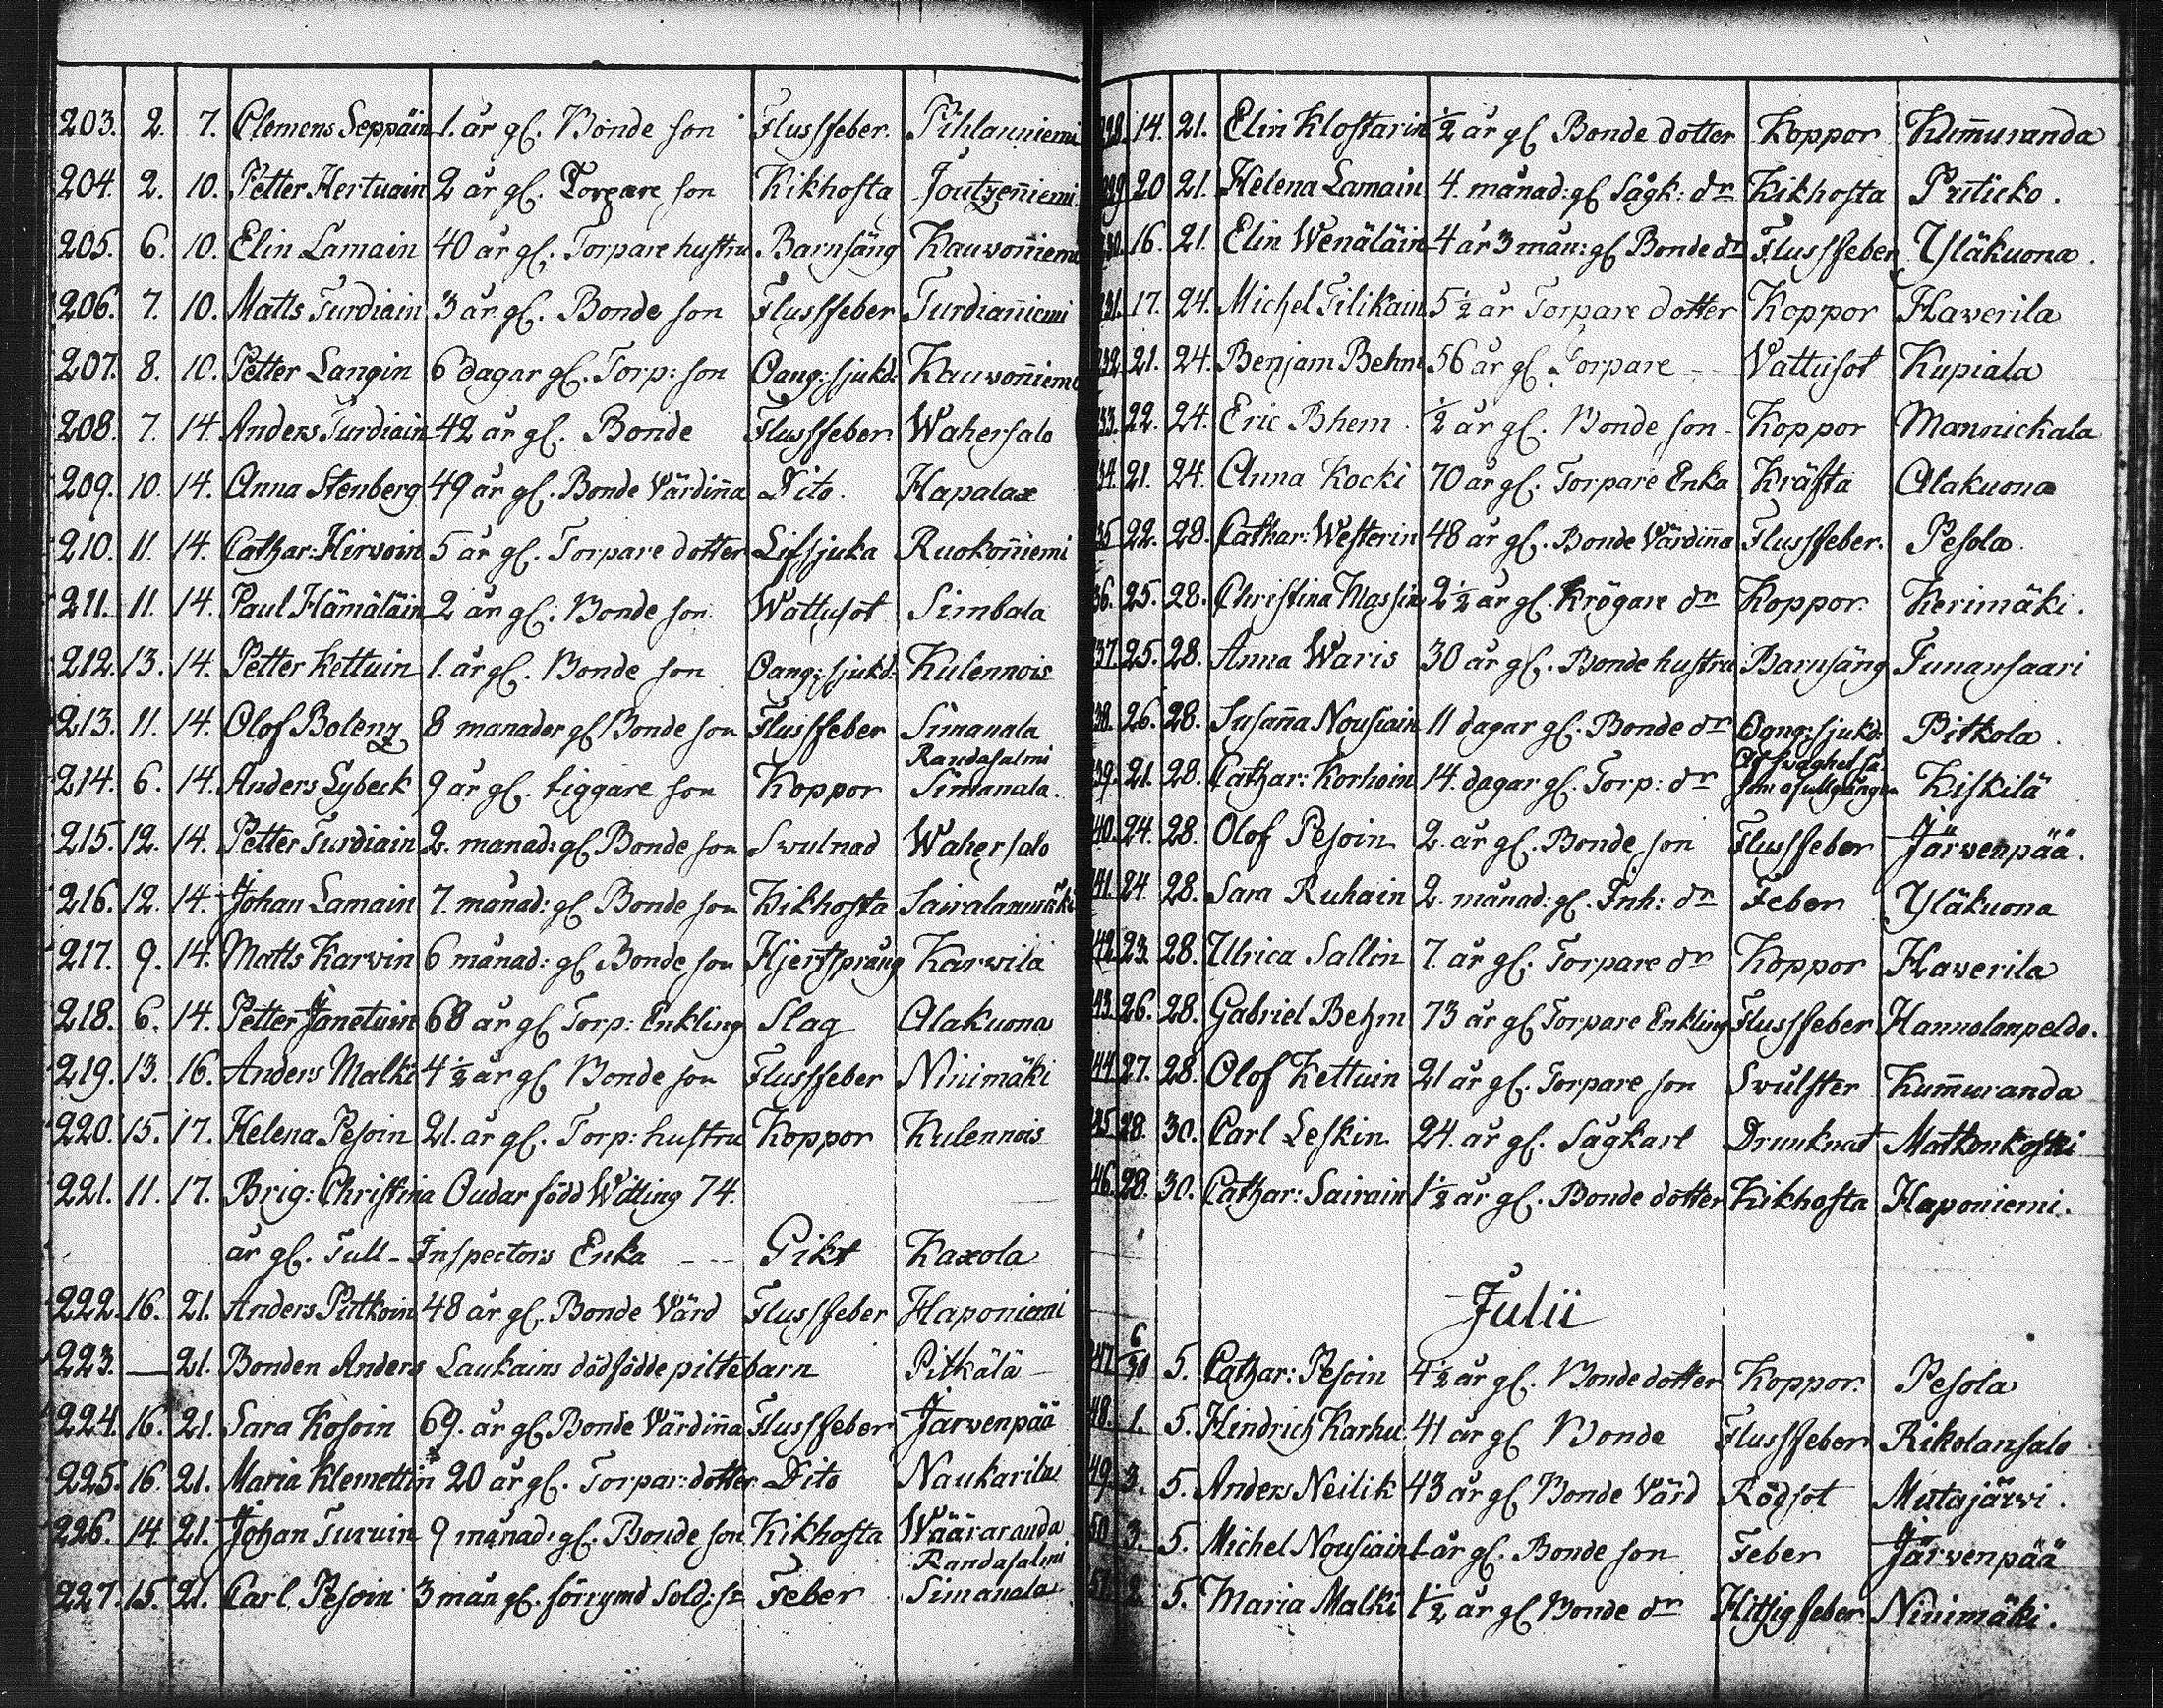 203. 2. 7. Clemens Seppäin 1. år gl. Bonde son Flussfeber. Pihlanniemi
204. 2. 10. Petter Hertuain 2 år gl. Torpare son Kikhosta Joutzenniemi
205. 6. 10. Elin Lamain 40 år gl. Torpare hustru Barnsäng Kauvonniemi
206. 7. 10. Matts Turdiain 3 år gl. Bonde son Flussfeber Turdianniemi
207. 8. 10. Petter Langin 6 dagar gl. Torp: son Oang: sjukd: Kauvonniemi
208. 7. 14. Anders Turdiain 42 år gl. Bonde Flussfeber Wahersalo
209. 10. 14. Anna Stenberg 49 år gl. Bonde Värdinna Dito. Hapalax
210. 11. 14. Cathar: Hirvoin 5 år gl. Torpare dotter Lifsjuka Ruokonniemi
211. 11. 14. Paul Hämäläin 2 år gl. Bonde son Wattusot Simbala
212. 13. 14. Petter Kettuin 1. år gl. Bonde son Oang: sjukd: Kulennois
213. 11. 14. Olof Bolenz 8 manader gl Bonde son Flussfeber Simanala
Randasalmi
214. 6. 14. Anders Lybeck 9 år gl. tiggare son Koppor Simanala.
215. 12. 14. Petter Turdiain 2. manad: gl Bonde son Svulnad Wahersalo
216. 12. 14. Johan Lamain 7. månad: gl Bonde son Kikhosta Sairalanmäki
217. 9. 14. Matts Karvin 6 månad: gl Bonde son Hjertsprång Karvila
218. 6. 14. Petter Janetuin 68 år gl Torp: Enkling Slag Alakuona
219. 13. 16. Anders Malki 4 ½ år gl Bonde son Flussfeber Ninimäki
220. 15. 17. Helena Pesoin 21. år gl. Torp: hustru Koppor Kulennois
221. 11. 17. Brig: Christina Oudar född Witting 74.
år gl. Tull-Inspectors Enka - - - Gikt Kaxola
222. 16. 21. Anders Pitkoin 48 år gl. Bonde Värd Flussfeber Haponiemi
223. — 21. Bonden Anders Laukains dödfödde piltebarn Pitkälä
224. 16. 21. Sara Kosoin 69. år gl. Bonde Värdinna Flussfeber Jarvenpää
225. 16. 21. Maria Klemettin 20 år gl. Torpar: dotter Dito Naukarila
226. 14 21. Johan Turuin 9 månad: gl. Bonde son Kikhosta Wääraranda
Randasalmi
227. 15. 21. Carl Pesoin 3 mån gl. förrymd Sold: sn Feber Simanala
228. 14. 21. Elin Klostarin ½ år gl Bonde dotter Koppor Kummuranda
229 20 21. Helena Lamain 4. månad: gl Sågk: dr Kikhosta Puticko.
230. 16. 21. Elin Wenäläin 4 år 3 mån: gl Bonde dr Flussfeber Yläkuona.
231. 17. 24. Michel Filikain 5 ½ år Torpare dotter Koppor Haverila
232 21. 24. Benjam Behm 56 år gl Torpare - - Vattusot Kupiala
233. 22. 24. Eric Bhem. ½ år gl. Bonde son - Koppor Mannickala
234. 21. 24. Anna Kocki 70 år gl. Torpare Enka Kräfta Alakuona
235 22. 28. Cathar: Westerin 48 år gl. Bonde Värdinna Flussfeber. Pesola.
236. 25. 28. Christina Massin 2 ½ år gl. Krögare dr Koppor. Kerimäki.
237. 25. 28. Anna Waris 30 år gl. Bonde hustru Barnsäng Tunansaari
238. 26. 28. Susanna Nousiain 11 dagar gl. Bonde dr Oang: sjukd: Pitkola.
239. 21. 28. Cathar: Korhoin 14. dagar gl. Torp: dr Af svaghet så som ofullgången Kiskilä
240. 24. 28. Olof Pesoin 2. år gl. Bonde son Flussfeber Järvenpää.
241. 24 28. Sara Ruhain 2. månad: gl. Inh: dr Feber Yläkuona
242. 23. 28. Ulrica Sallin 7. år gl. Torpare dr Koppor Haverila
243. 26. 28. Gabriel Behm 73 år gl Torpare Enkling Flussfeber Hannolanpeldo.
244. 27. 28. Olof Kettuin 21 år gl. Torpare son Svulster Kummuranda
245. 28. 30. Carl Leskin 24. år gl. Sågkarl Drunknat Matkonkoski
246. 28. 30. Cathar: Sairain 1 ½ år gl. Bonde dotter Kikhosta Haponiemi.
Julii
247. 6/30 5. Cathar: Pesoin 4 ½ år gl. Bonde dotter Koppor. Pesola
248. 1. 5. Hindrich Karhu 41 år gl Bonde Flussfeber Rikolansalo
249. 3. 5. Anders Neilik 43 år gl Bonde Värd Rödsot Mutajärvi.
250 3. 5. Michel Nousiain 1 år gl. Bonde son Feber Järvenpää
251. 2. 5. Maria Malki 1 ½ år gl Bonde dr Hitsig feber Ninimäki.